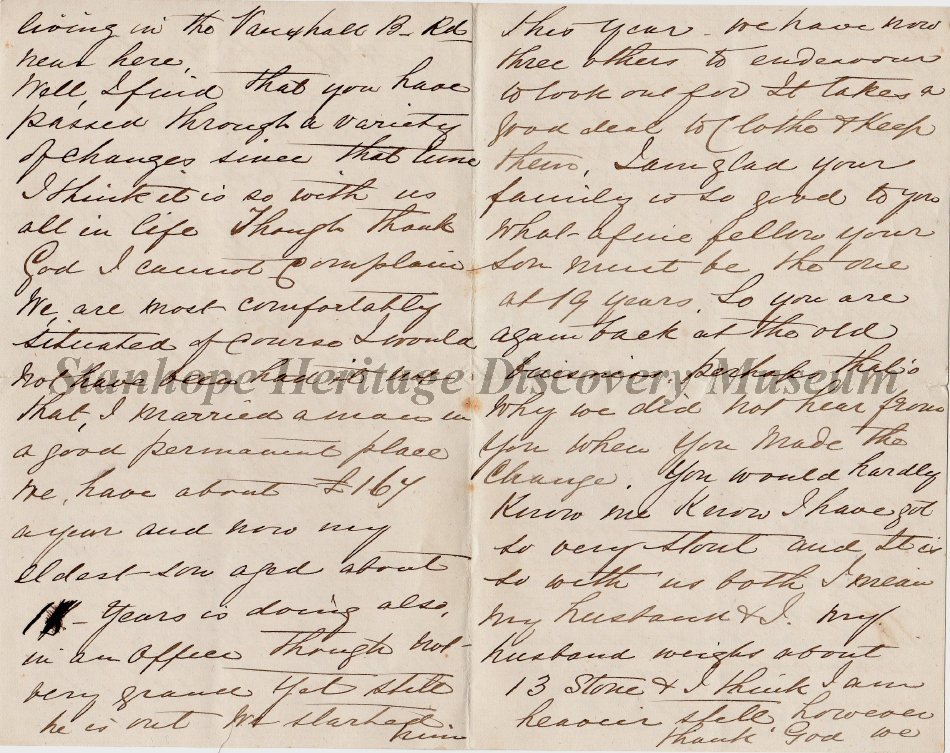 living in the Vauxhall B- Rd
near here,
Well, I find that you have
passed through a variety
of changes since that time
I think it is so with us
all in life Though thank
God I cannot Complain
We, are most comfortably
situated of course I would
not have been had it
that, I married a man in
a good permanent place
We, have about £167
a year and now my
eldest son aged about
Years is doing also,
in an Office though not
very grand Yet still
he is out We started
him
this Year - we have now
three others to endeavour
to look out for It takes a
good deal to Clothe & Keep
them, I am glad your
family is so good to you
What a fine fellow your
son must be the one
at 19 years. So you are
again back at the old
perhaps that's
why we did not hear from
you when you made the
Change. You would hardly
Know me Know I have got
so very stout and It is
so with us both I mean
my husband & I. my
husband weighs about
13 Stone & I think I am
heavier still however
thank God we
Stanhope Heritage Discovery Museum